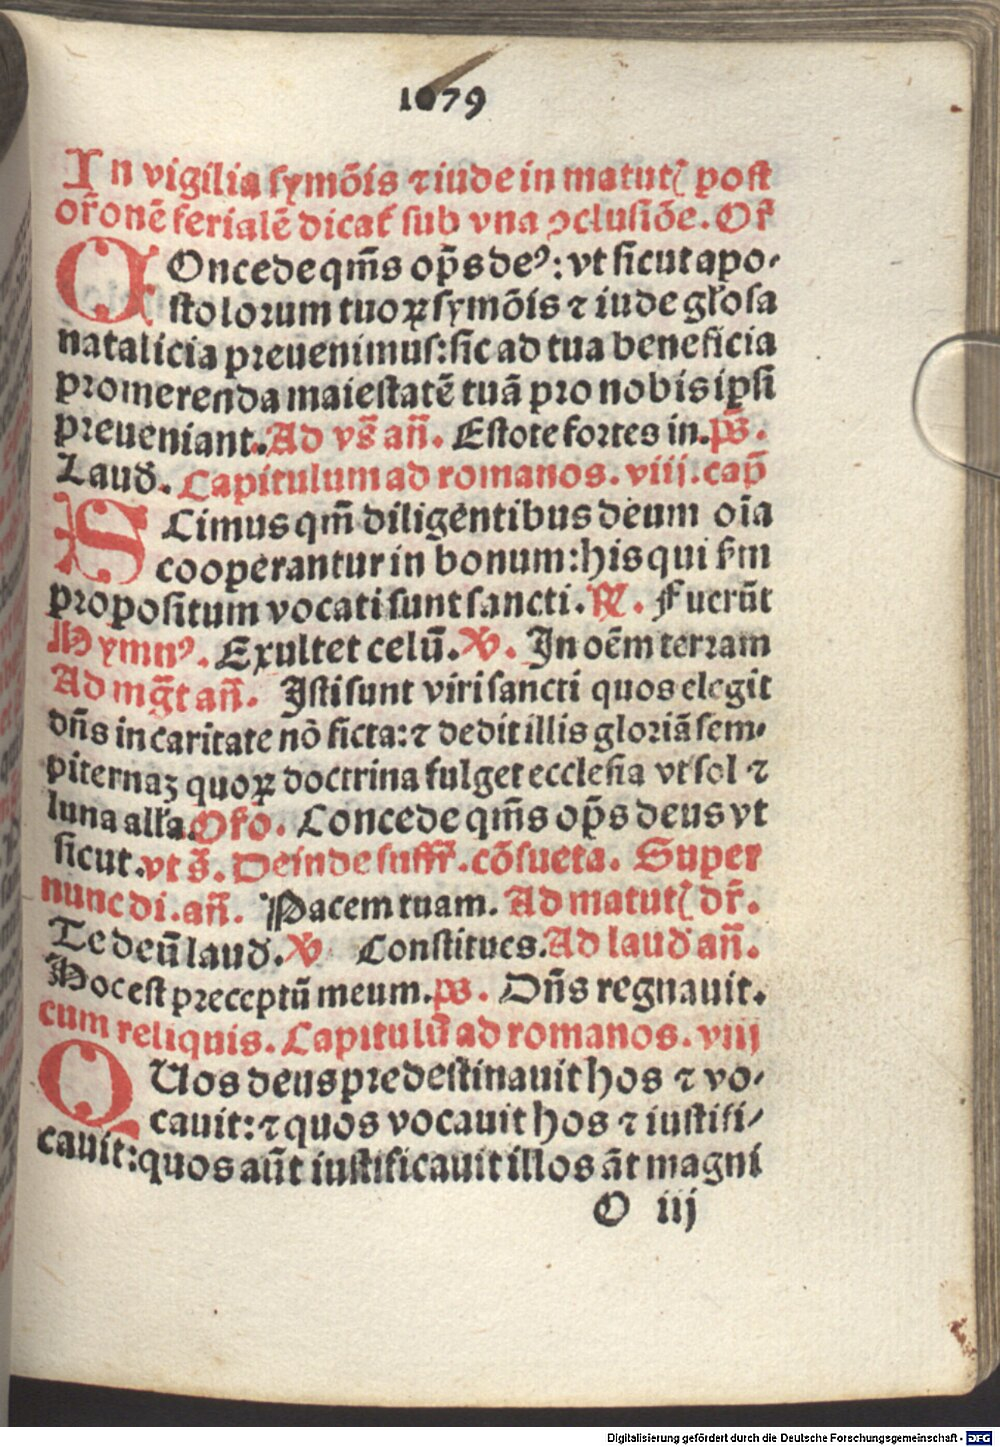 1079
In vigilia symõis ⁊ iude in matutꝭ post
or̃onẽ ferialẽ dicat̃ sub vna ↄclusiõe. Or̃
COncede qm̃s op̃s deꝰ: vt sicut apo-
stolorum tuoꝝ symõis ⁊ iude gl̃osa
natalicia preuenimus: sic ad tua beneficia
promerenda maiestatẽ tuã pro nobis ip̃si
preueniant. Ad vs̃ añ. Estote fortes in. ps̃.
Laud̃. Capitulum ad romanos. viij. cap̃
SCimus qm̃ diligentibus deum oĩa
cooperantur in bonum: his qui s̃m
propositum vocati sunt sancti. ℟. Fuerũt
Hymnꝰ. Exultet celũ. ℣. In oẽm terram
Ad mg̃t añ. Isti sunt viri sancti quos elegit
dñs in caritate nõ ficta: ⁊ dedit illis gloriã sem-
piternaꝫ quoꝝ doctrina fulget ecclesia vt sol ⁊
luna all̃a. Or̃o. Concede qm̃s op̃s deus vt
sicut. vt s̃. Deinde suffr̃. cõsueta. Super
nunc di. añ. Pacem tuam. Ad matutꝭ dr̃.
Te deũ laud̃. ℣ Constitues. Ad laud̃ añ.
Hoc est preceptũ meum. ps. Dñs regnauit.
cum reliquis. Capitulũ ad romanos. viij
QUos deus predestinauit hos ⁊ vo-
cauit: ⁊ quos vocauit hos ⁊ iustifi-
cauit: quos aũt iustificauit illos ãt magni
O iij
Digitalisierung gefördert durch die Deutsche Forschungsgemeinschaft - DFG